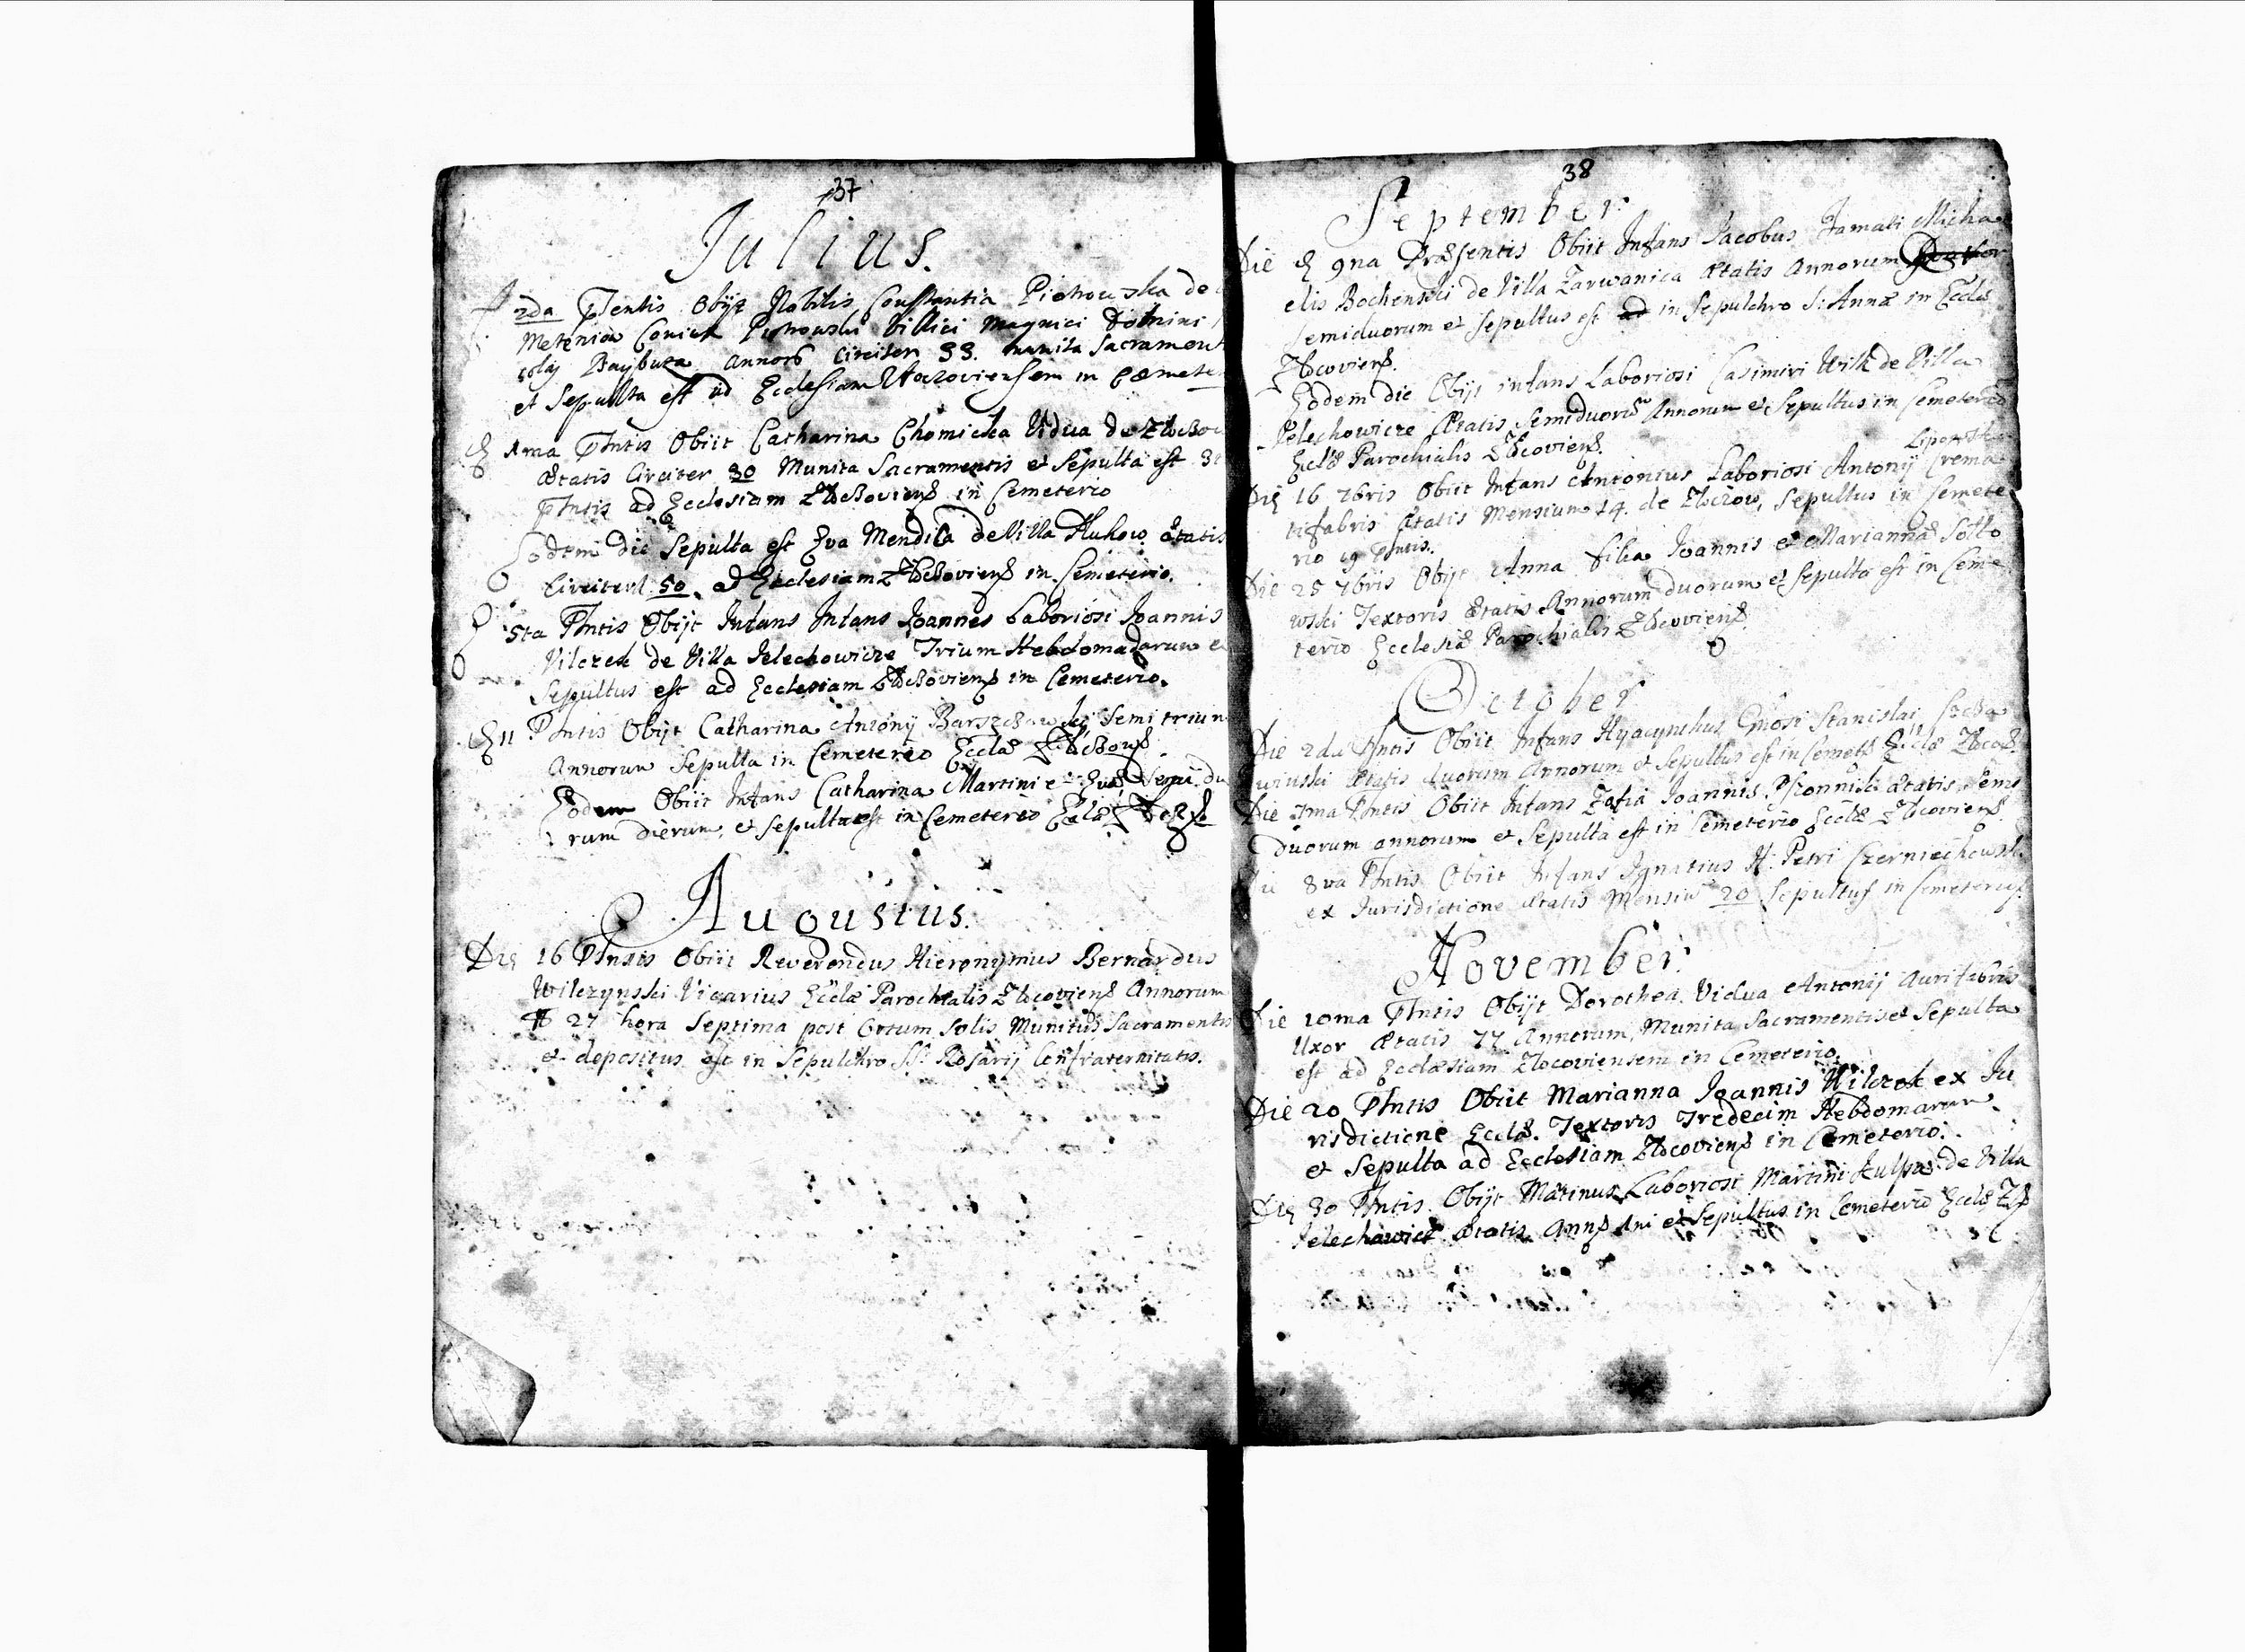 37
Julius.
2da Psentis Obijt Nobilis Constantia Piotrowska de
Metenia Coniux Piotrowski Villici Magnici Domini
Baybuza annorũ Circiter 33. munita Sacrament
et Sepulta est ad Ecclesiam in Cæmete
1ma Phntis Obiit Catharina Chomicka Vidua de Złoczow
Ætatis Circiter 30 Munita Sacramentis et Sepulta est
Phntis ad Ecclesiam Złoczoviens in Cemeterio
Eodem die Sepulta est Eva Mendica de Villa Hluhow Ætatis
Circiter 50 ad Ecclesiam Złoczoviens in Cemeterio.
5ta Phntis Obijt Infans Infans Joannes Laboriosi Joannis
Vilczek de Villa Jelechowicze Trium Hebdomadarum
Sepultus est ad Ecclesiam Złoczoviens in Cemeterio.
11 Phntis Obijt Catharina Antonij Semi trium
Annorum Sepulta in Cemeterio Eccłæ
Eodem Obiit Infans Catharina Martini Evæ Semi du
rum dierum, et sepulta est in Cemeterio Eccłæ
Augustus.
Die 16 Phntis Obiit Reverendus Hieronymus Bernardus
Wilczynski Vicarius Eccłæ Parochialis Złocoviens Annorum
27 hora Septima post Ortum Solis Munitus Sacramentis
et depositus est in Sepulchro SS: Rosarij Confraternitatis.
38
September
Die 9na Præsentis Obiit Infans Jacobus Famati Micha
elis Bochenski de Villa Zarwanica Ætatis Annorum
Semiduorum et sepultus est ad in Sepulchro S: Annæ in Eccła
Złocoviens.
Eodem die Obijt infans Laboriosi Casimiri Wilk de Villa
Jelechowicze Ætatis Semiduorũ Annorum et Sepultus in Cemeterio
Eccłæ Parochialis Złocoviens.
Die 16 7bris Obiit Infans Antonius Laboriosi Antonij Crema
tifabris Ætatis Mensium 14. de Złoczow, Sepultus in Cemete
rio 19 Phntis.
Die 25 7bris Obijt Anna filia Joannis et Mariannæ Sołto
wski Textoris Ætatis Annorum duorum et sepulta est in Ceme
terio Ecclesiæ Parochialis Złocoviens.
October
Die 2da Phntis Obiit Infans Hyacynthus Gñosi Stanislai
Ætatis duorum Annorum et Sepultus est in Cemet Eccłæ
Die 7ma Phntis Obiit Infans Zofia Joannis Ætatis Semi
duorum annorum et Sepulta est in Cemeterio Eccłæ Złocoviens
8va Phntis Obiit Infans Ignatius Petri Czerniechowski
ex Jurisdictione Ætatis Mensiũ 20 Sepultus in Cemeterio
November
Die 10ma Phntis Obijt Dorothea Vidua Antonij Aurifabris
Uxor Ætatis 77 Annorum, Munita Sacramentis et Sepulta
est ad Ecclesiam Zlocoviensem in Cemeterio.
Die 20 Phntis Obiit Marianna Joannis Wilczek ex Ju
risdictione Eccłæ. Textoris Tredecim Hebdomarum
et Sepulta ad Ecclesiam Złocoviens in Cemeterio.
Die 30 Phntis Obijt Matinus Laboriosi Martini de Villa
Jelechowicz Ætatis Ann et Sepultus in Cemeterio Eccłæ